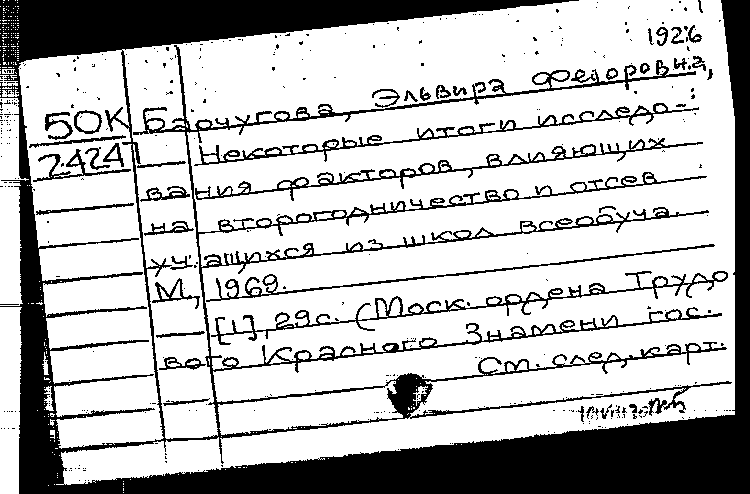 1926
50К Барчугова, Эльвира Федоровна,
2424 Некоторые итоги исследо-
вания факторов, влияющих
на второгодничество и отсев
учащихся из школ всеобуча.
М., 1969.
[1], 29с. (Моск. ордена Трудо
вого Красного Знамени гос.
См. след. карт.